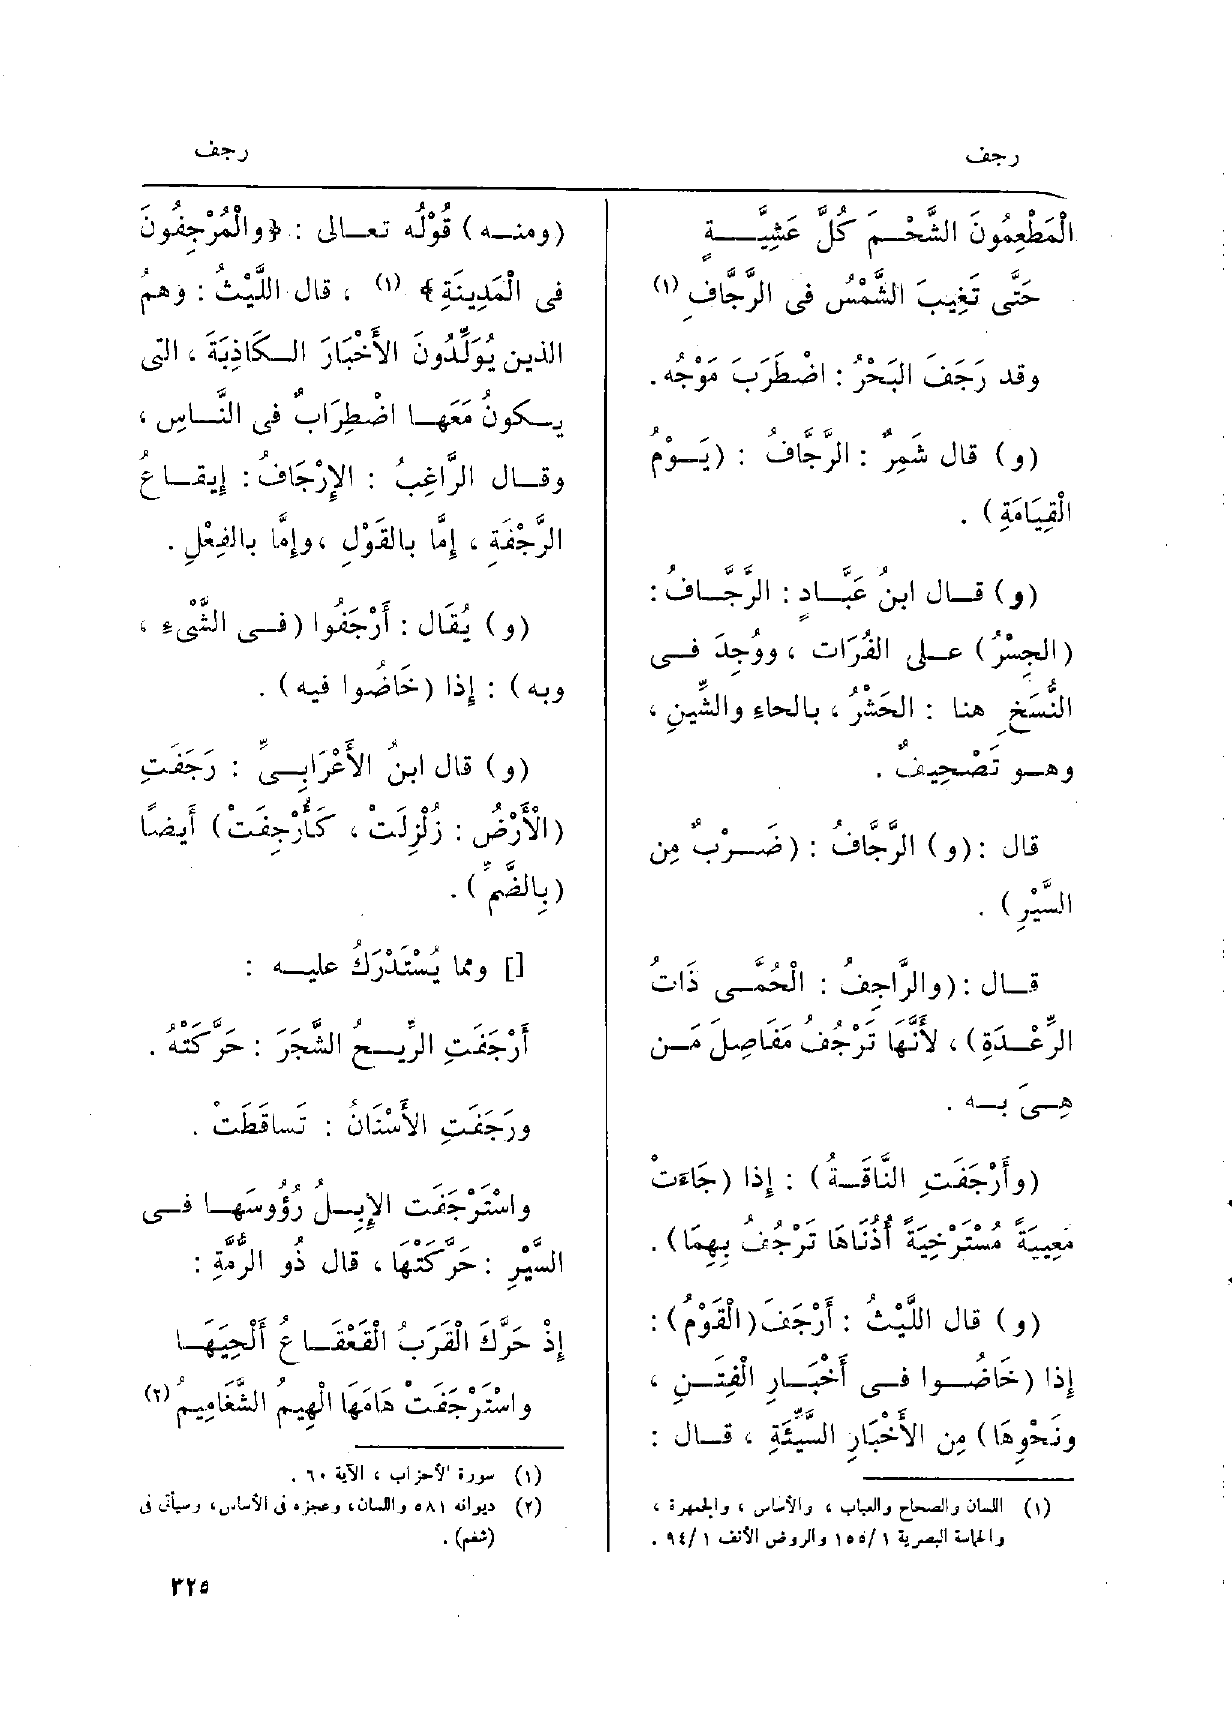 رجف
رجف
الْمُطْعِمُونَ الشَّحْمَ كُلَّ عَشِيَّةٍ
حَتَّى تَغِيبَ الشَّمْسُ فى الرَّجَّافِ (١)
وقد رَجَفَ البَحْرُ : اضْطَرَبَ مَوْجُه.
(و) قال شَمِرٌ : الرَّجَّافُ : (يَوْمُ
الْقِيَامَةِ) .
(و) قال ابنُ عَبَّادٍ : الرَّجَّافُ :
(الجِسْرُ) على الفُرَات ، ووُجِدَ فى
النُّسَخِ هنا : الحَشْرُ ، بالحاءِ والشِّينِ ،
وهو تَصْحِيفٌ .
قال : (و) الرَّجَّافُ : (ضَرْبٌ مِن
السَّيْرِ) .
قال : (والرَّاجِفُ : الْحُمَّى ذَاتُ
الرِّعْدَةِ) ، لأَنَّهَا تَرْجُفُ مَفَاصِلَ مَن
هِىَ به .
(وأَرْجَفَتِ النَّاقَةُ) : إذا (جَاءَتْ
مُعْيِيَةً مُسْتَرْخِيَةً أُذُنَاهَا تَرْجُفُ بِهِمَا).
(و) قال اللَّيْثُ : أَرْجَفَ (الْقَوْمُ) :
إذا (خَاضُوا فى أَخْبَارِ الْفِتَنِ ،
ونَحْوِهَا) مِن الأَخْبَارِ السَّيِّئَةِ ، قال :
(١) اللسان والصحاح والعباب ، والأساس ، والجمهرة ،
والحماسة البصرية ١/١٥٥ والروض الأنف ٩٤/١ .
(ومنه) قَوْلُه تعالى : ﴿والْمُرْجِفُونَ
فى الْمَدِينَةِ﴾ (١) ، قال اللَّيْثُ : وهمُ
الذين يُوَلِّدُونَ الأَخْبَارَ الكَاذِبَةَ ، التى
يكونُ مَعَها اضْطِرَابٌ فى النَّاسِ ،
وقال الرَّاغِبُ : الإِرْجَافُ : إيقاعُ
الرَّجْفَةِ ، إِمَّا بالقَوْلِ ، وإِمَّا بالفِعْلِ .
(و) يُقَال : أَرْجَفُوا (فى الشَّىْءِ ،
وبه) : إذا (خَاضُوا فيه) .
(و) قال ابنُ الأَعْرَابِىِّ : رَجَفَتِ
(الْأَرْضُ : زُلْزِلَتْ ، كَأُرْجِفَتْ) أَيضًا
(بِالضَّمِّ) .
[] ومما يُسْتَدْرَكُ عليه :
أَرْجَفَتِ الرِّيحُ الشَّجَرَ : حَرَّكَتْهُ .
ورَجَفَتِ الأَسْنَانُ : تَساقَطَتْ .
واسْتَرْجَفَت الإِبِلُ رُؤُوسَها فى
السَّيْرِ : حَرَّكَتْهَا ، قال ذُو الرُّمَّةِ :
إِذْ حَرَّكَ الْقَرَبُ الْقَعْقَاعُ أَلْحِيَهَا
واسْتَرْجَفَتْ هَامَهَا الْهِيمُ الشَّغَامِيمُ (٢)
(١) سورة الأحزاب ، الآية ٦٠ .
(٢) ديوانه ٥٨١ واللسان، وعجزه فى الأساس، وسيأتى فى
(شغم) .
٣٢٥